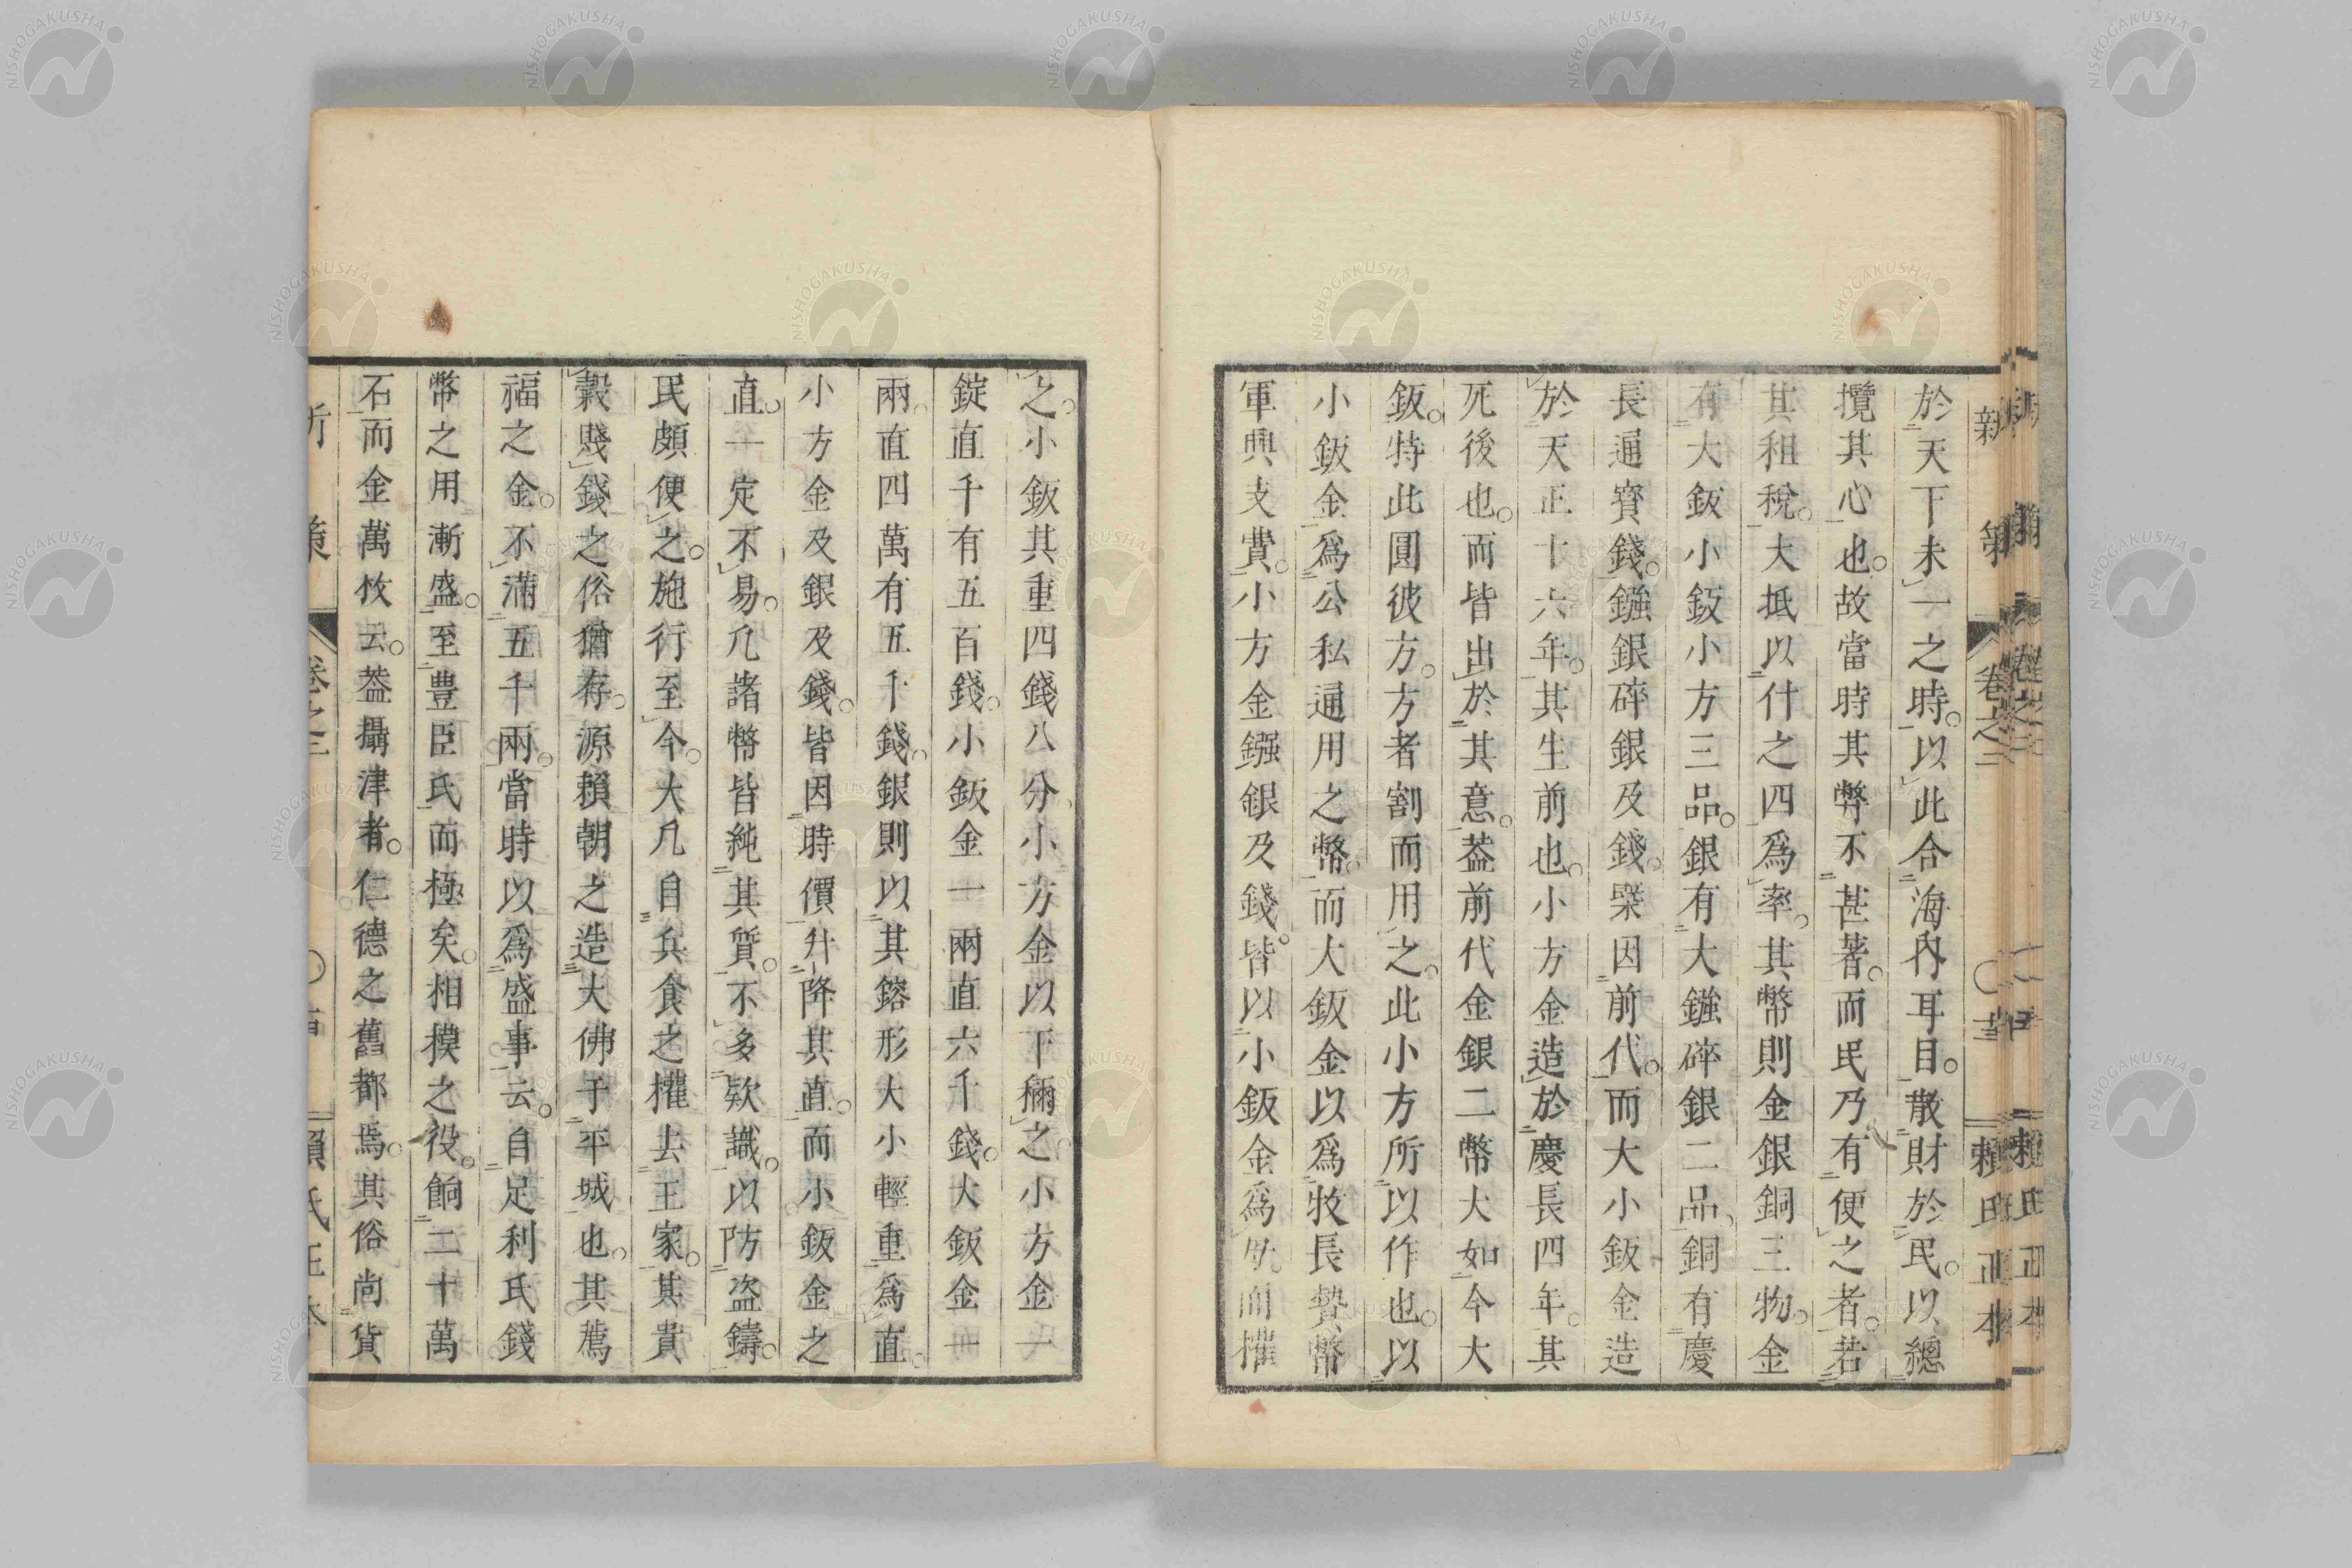 新策 卷之三 〇 賴氏正本
於天下未一之時。以此合海內耳目。散財於民。以總
攬其心也。故當時其弊不甚著。而民乃有便之者。若
其租稅。大抵以什之四爲率。其幣則金銀銅三物。金
有大鈑小鈑小方三品。銀有大鏹碎銀二品、銅有慶
長通寶錢。鏹銀碎銀及錢。槩因前代。而大小鈑金造
於天正十六年。其生前也。小方金造於慶長四年。其
死後也。而皆出於其意。葢前代金銀二幣大如今大
鈑。特此圓彼方。方者割而用之。此小方所以作也。以
小鈑金爲公私通用之幣。而大鈑金以爲牧長贄幣
軍興支費。小方金鏹銀及錢。皆以小鈑金爲 而權
之。小鈑其重四錢八分、小方金以下稱之。小方金一
錠直千有五百錢。小鈑金一兩直六千錢。大鈑金一
兩。直四萬有五千錢。銀則以其鎔形大小輕重爲直。
小方金及銀及錢。皆因時價升降其直。而小鈑金之
直。一定不易。凡諸幣皆純其質。不多欵識。以防盗鑄。
民頗便之。施行至今。大凡自兵食之權去王家。其貴
穀賤錢之俗猶存。源賴朝之造大佛于平城也。其薦
福之金。不滿五千兩。當時以爲盛事云。自足利氏錢
幣之用漸盛。至豊臣氏而極矣。相摸之役。餉二十萬
石而金萬枚云。葢攝津者。仁德之舊都焉。其俗尚貨
NISHOGAKUSHA